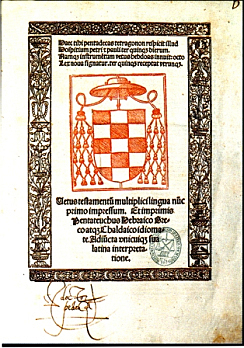 Haec tibi pentadecas tetragonon respicit illud
Hospitium petri et pauli ter quinque dierum.
Namque instrumentum vetus hebdoas innuit: octo
Lex nova signatur. ter quinque receptat utrumque.
Vetus testamentum multiplici lingua nunc
primo impressum. Et imprimis
Pentateuchus Hebraico Greco
atque Chaldaico idioma
te. Adiuncta unicuique sua
latina interpreta
tione.